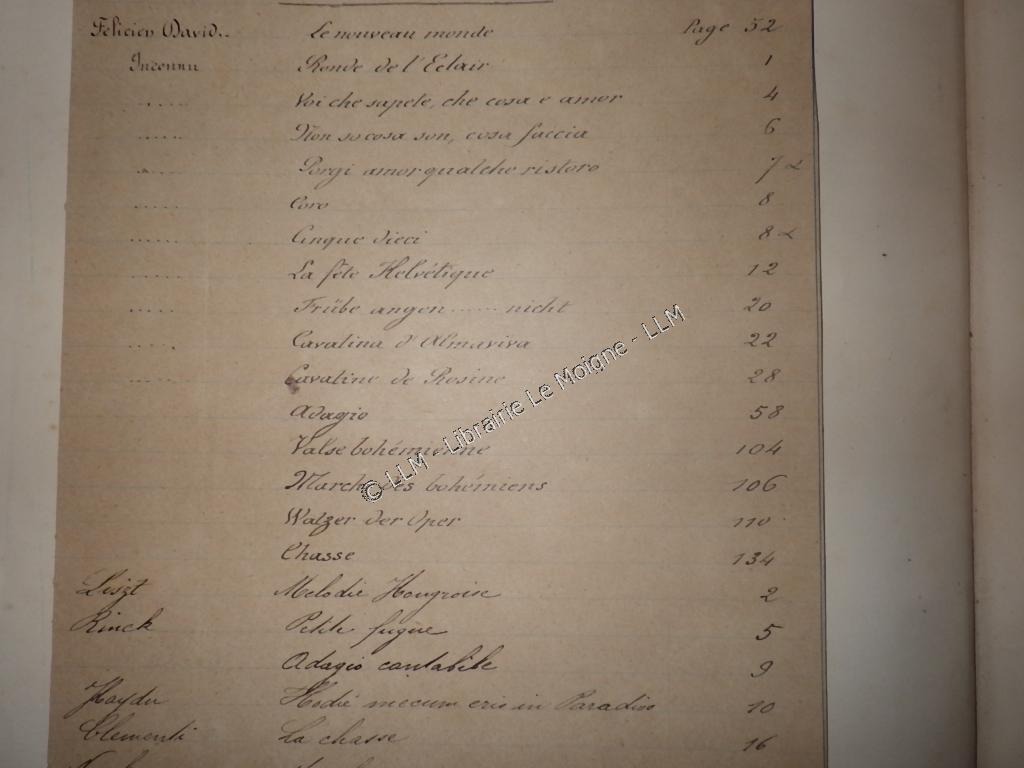 Felicien David.. Le nouveau monde Page 52
Inconnu Ronde de l'Eclair 1
..... Voi che sapete, che cosa e amor 4
..... Non so cosa son, cosa faccia 6
..... Porgi amor qualche ristoro 7
..... Coro 8
..... Cinque dieci 8
..... La fête Helvétique 12
..... Trübe angen ...... nicht 20
..... Cavatina d'Almaviva 22
..... Cavatine de Rosine 28
Adagio 58
Valse bohémienne 104
Marche des bohémiens 106
Walzer der Oper 110
Chasse 134
Liszt Melodie Hongroise 2
Rinck Petite fugue 5
Adagio cantabile 9
Haydn Hodie mecum eris in Paradiso 10
Clementi La chasse 16
© LLM - Librairie Le Moigne - LLM